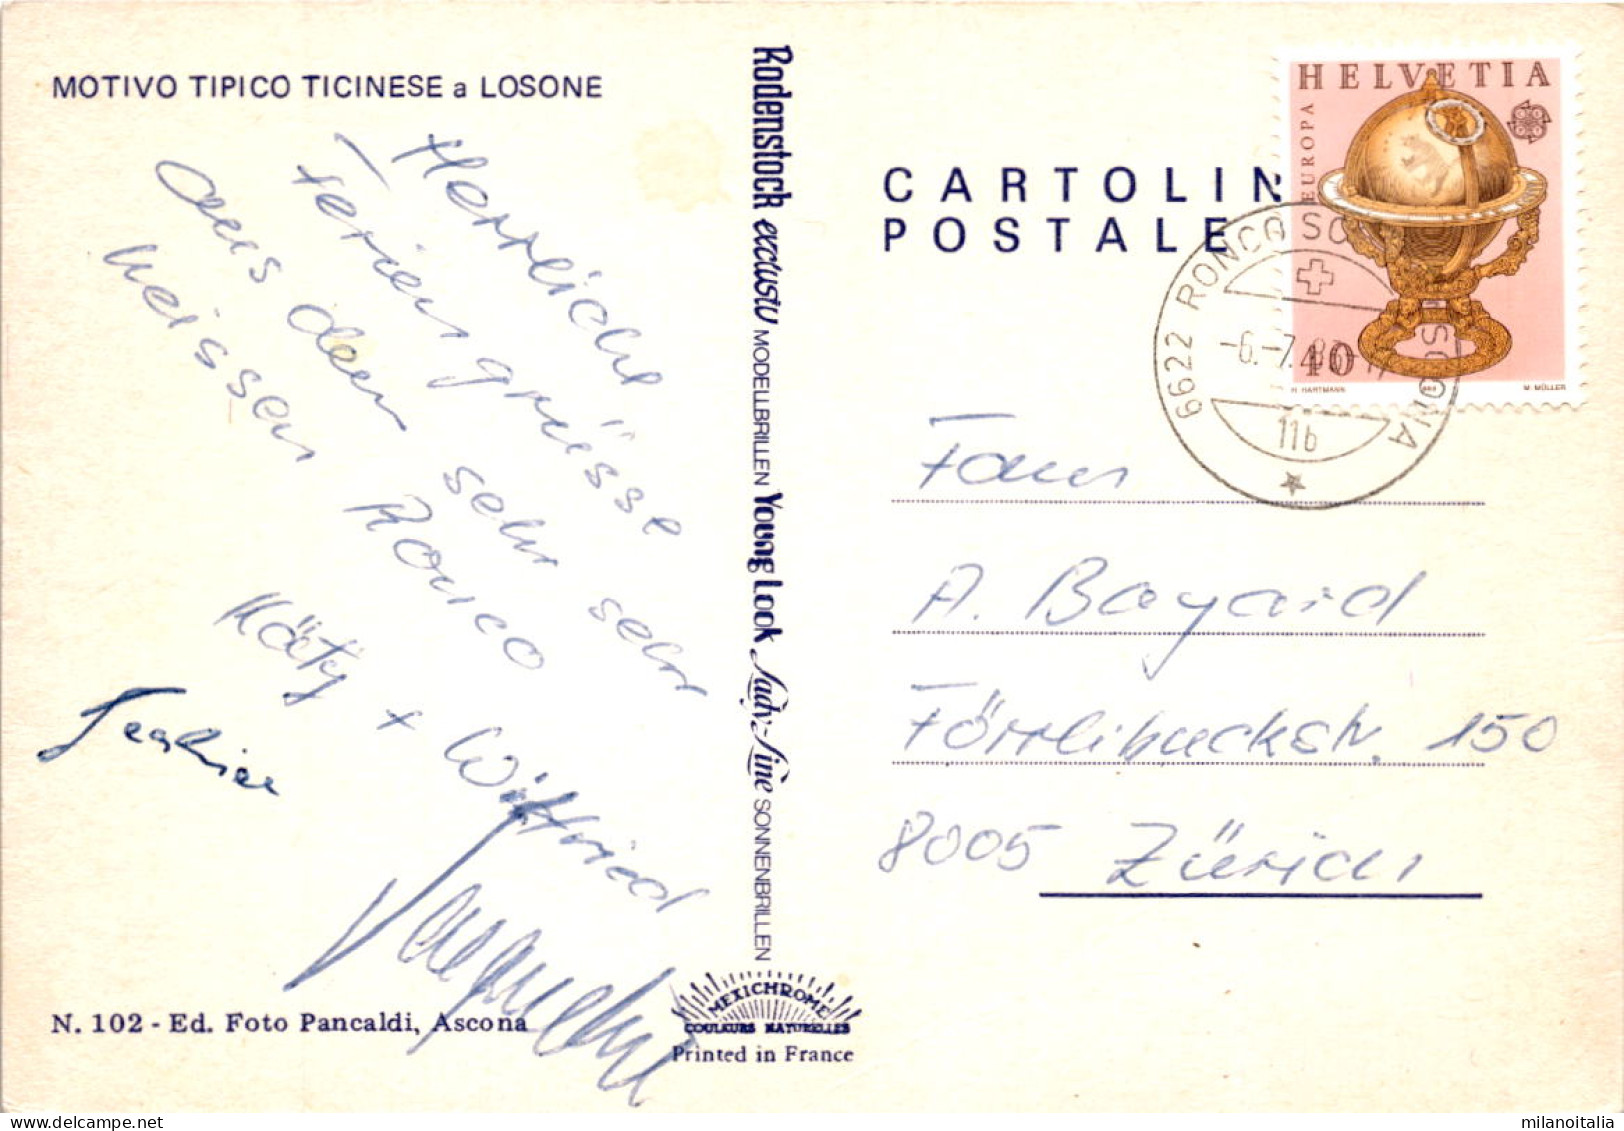 MOTIVO TIPICO TICINESE a LOSONE
Herrliche
Feriengrüsse
aus dem sehr sehr
heissen Ronco
Käty + Wilfried
Jacqueline
N. 102 - Ed. Foto Pancaldi, Ascona
Rodenstock exclusiv MODELLBRILLEN Young Look Lady-Line SONNENBRILLEN
MEXICHROME
COULEURS NATURELLES
Printed in France
CARTOLIN
POSTALE
HELVETIA
EUROPA
40
H. HARTMANN
M. MÜLLER
6622 RONCO SOPRA ASCONA
-6.-7.
11b
Fam
A. Bayard
Förrlibuckstr. 150
8005 Zürich
milanoitalia